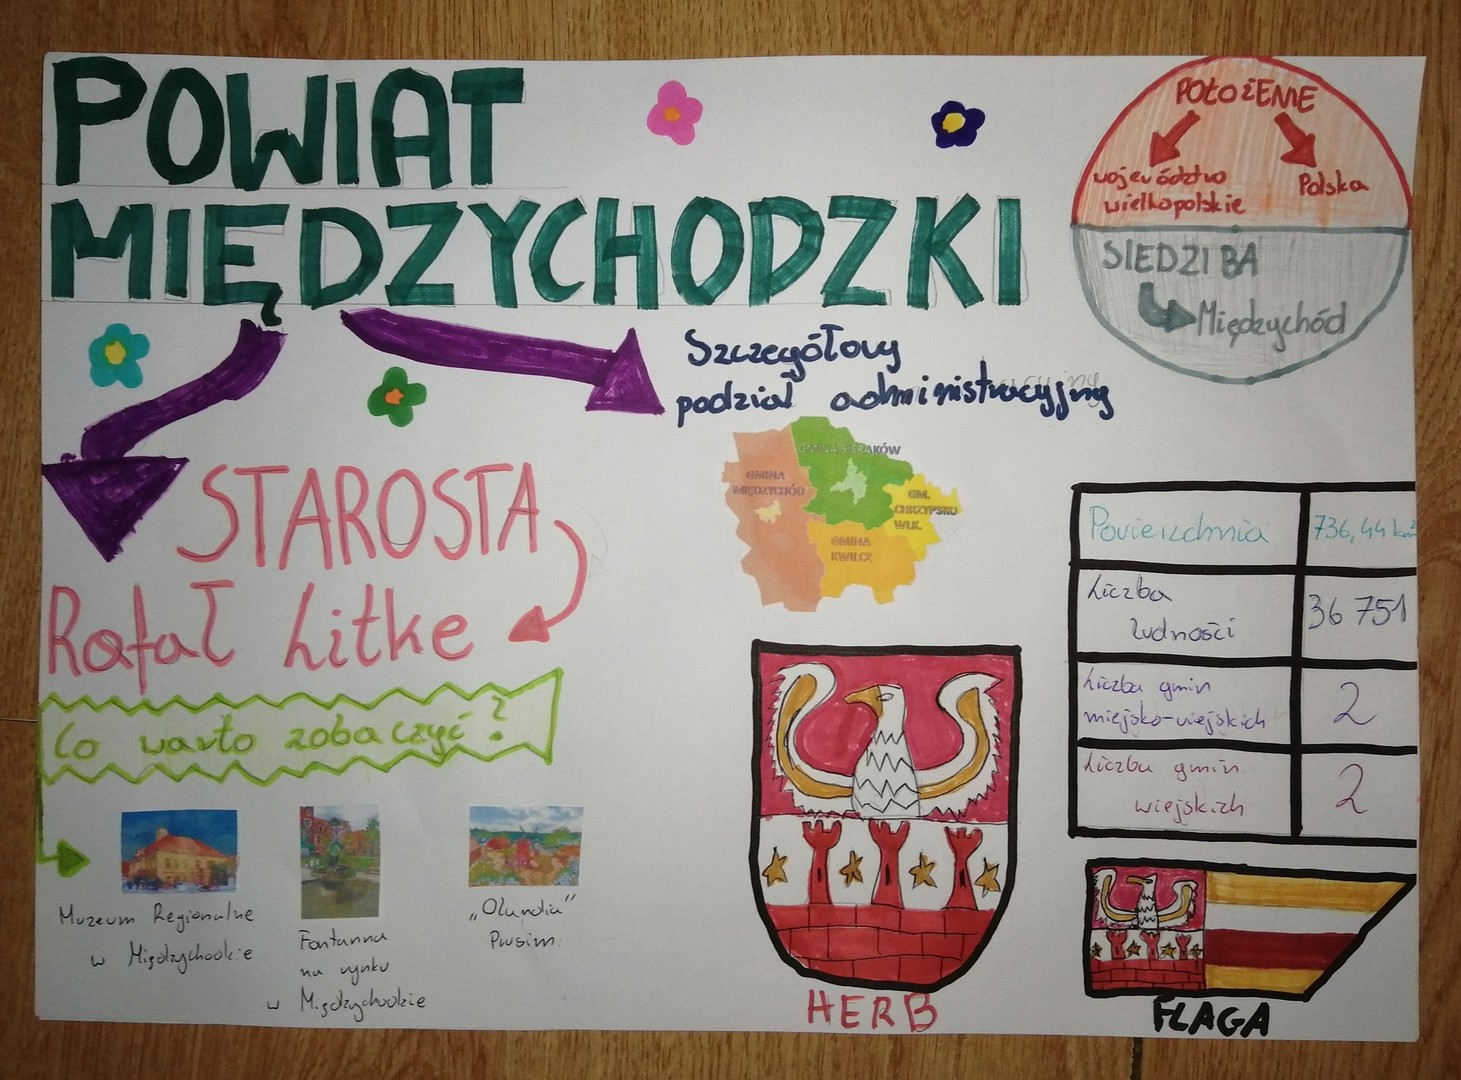 POWIAT
MIĘDZYCHODZKI
POŁOŻENIE
województwo
wielkopolskie
Polska
SIEDZIBA
Międzychód
Szczegółowy
podział administracyjny
GMINA SIERAKÓW
GMINA
MIĘDZYCHÓD
GM.
CHRZYPSKO
WLK.
GMINA
KWILCZ
STAROSTA
Rafał Litke
Powierzchnia 736,44 km²
Liczba
ludności 36 751
Liczba gmin
miejsko-wiejskich 2
Liczba gmin
wiejskich 2
Co warto zobaczyć?
Muzeum Regionalne
w Międzychodzie
Fontanna
na rynku
w Międzychodzie
„Olandia"
Prusim
HERB
FLAGA